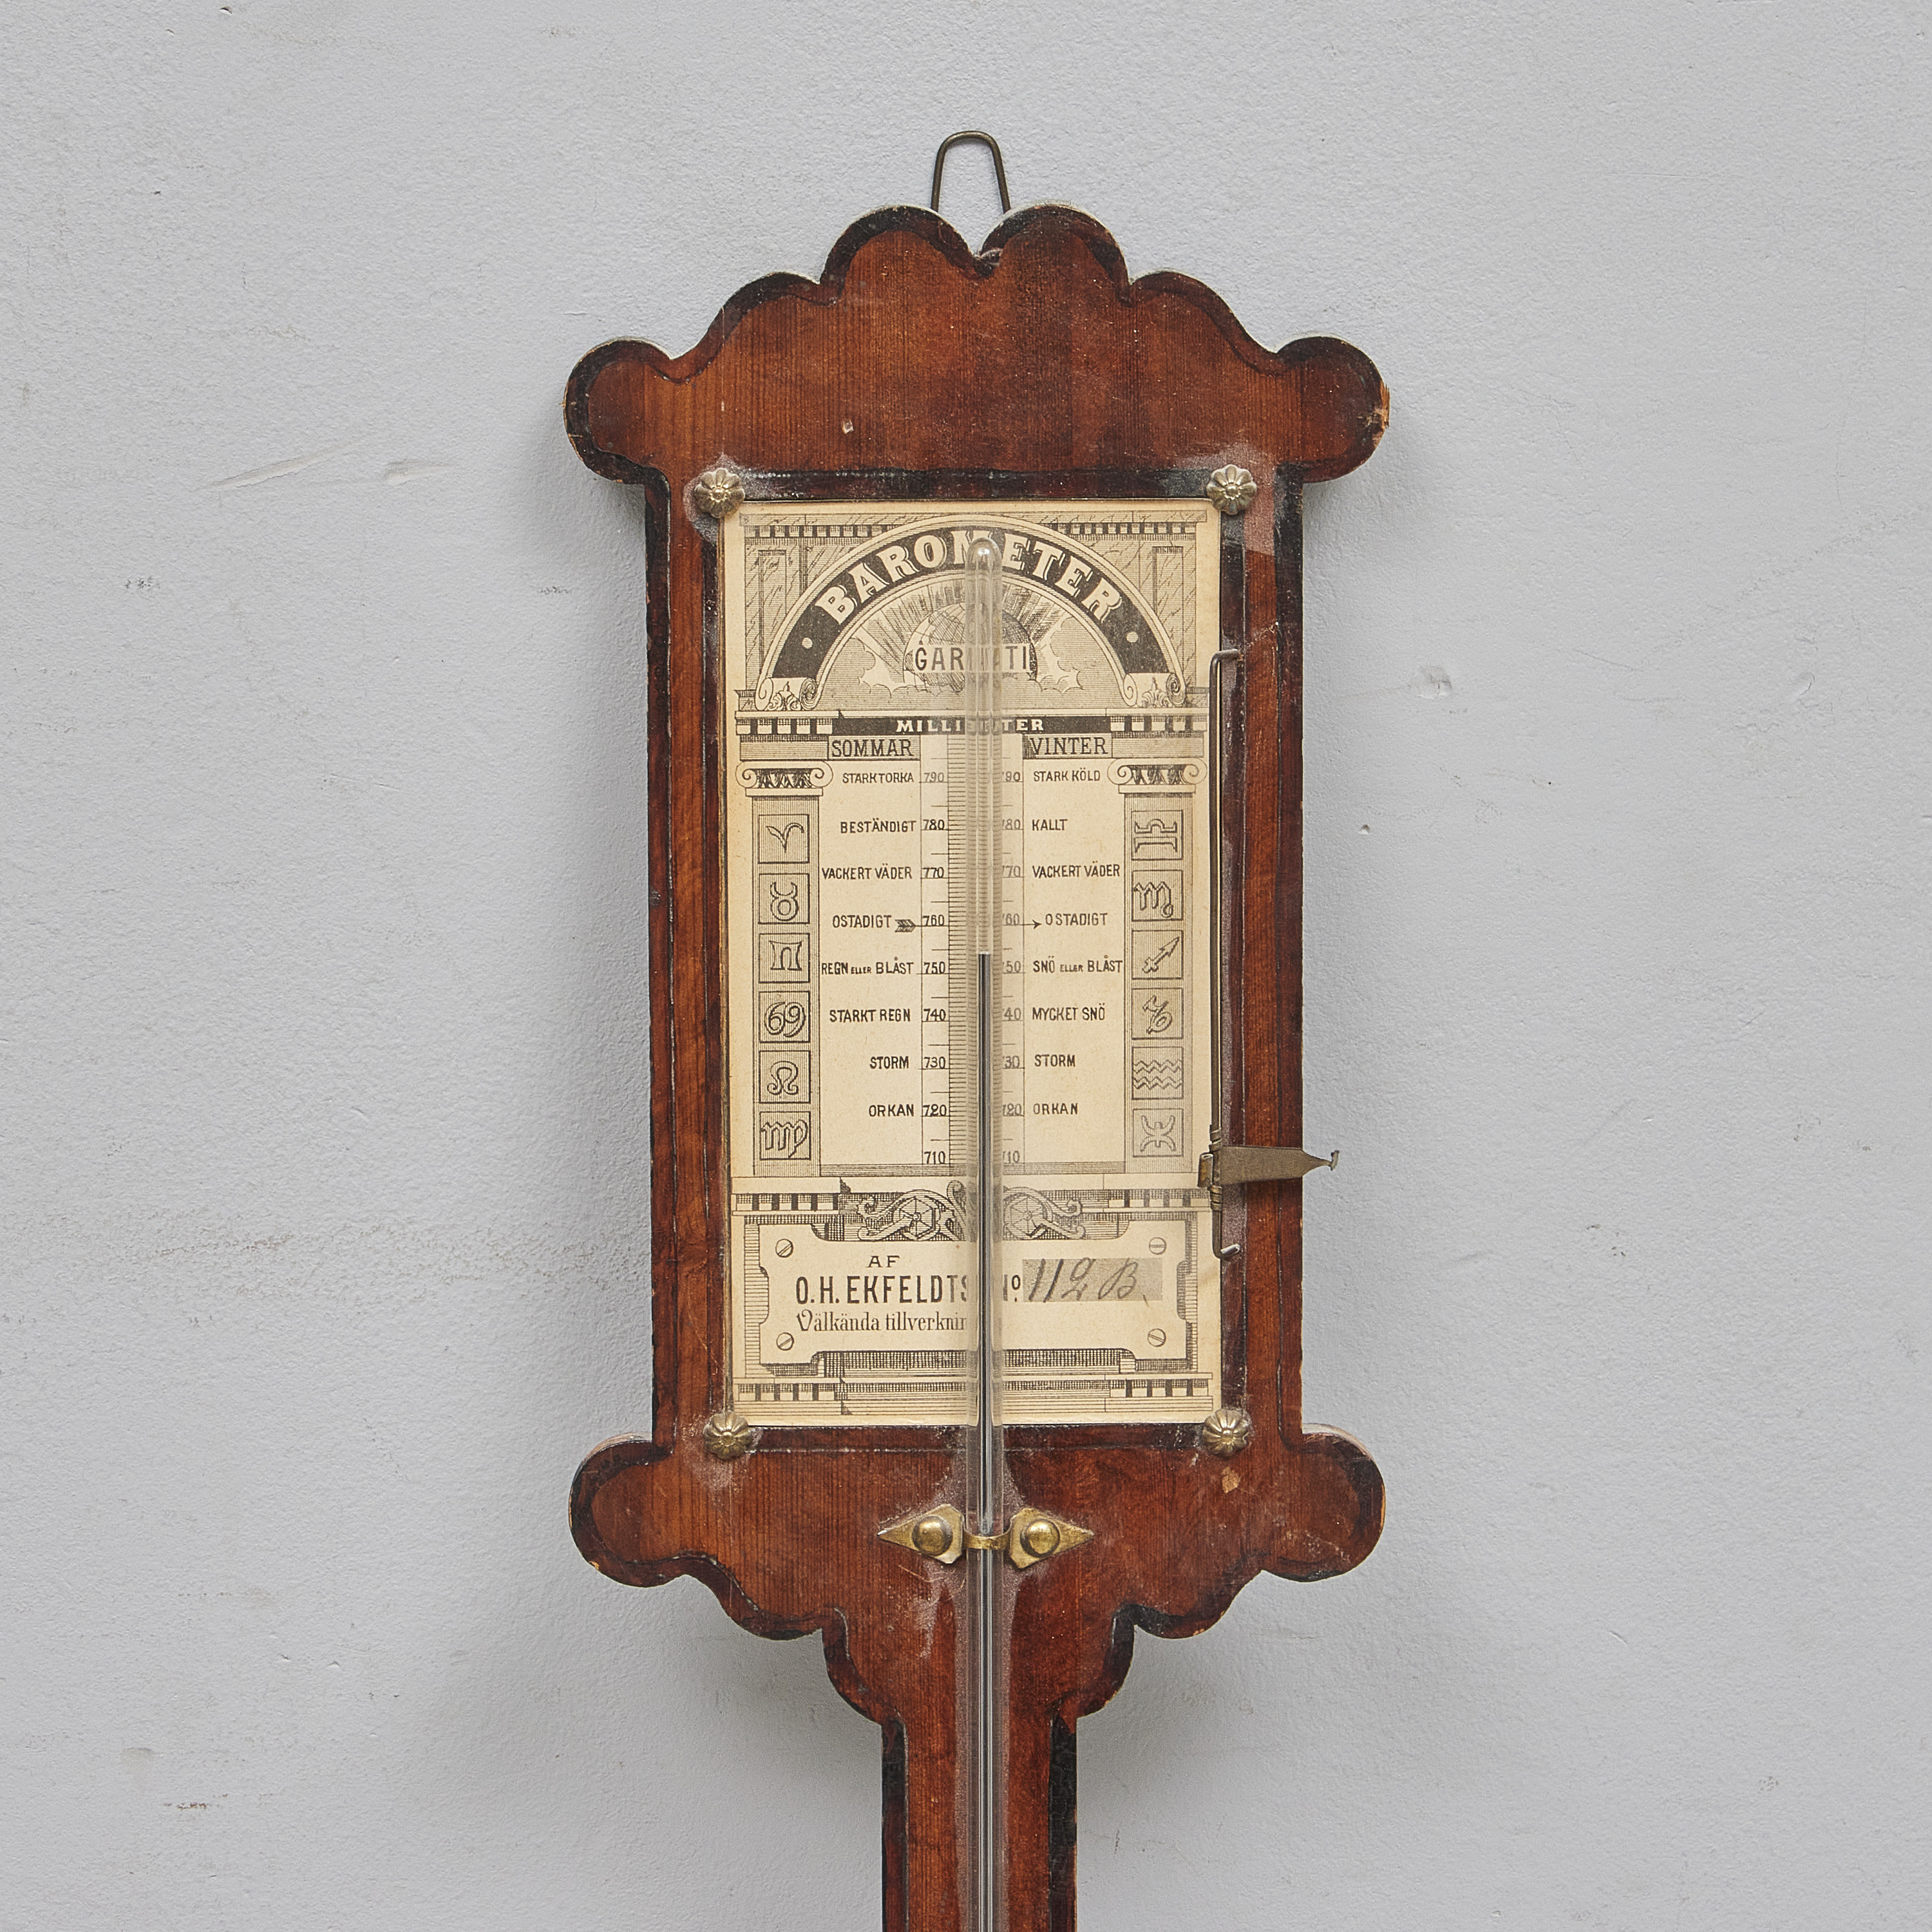 BAROMETER
MILLIMETER
SOMMAR VINTER
STARK TORKA 790 790 STARK KÖLD
BESTÄNDIGT 780 780 KALLT
VACKERT VÄDER 770 770 VACKERT VÄDER
OSTADIGT 760 760 OSTADIGT
REGN ELLER BLÅST 750 750 SNÖ ELLER BLÅST
STARKT REGN 740 740 MYCKET SNÖ
STORM 730 730 STORM
ORKAN 720 720 ORKAN
710 710
AF
O.H. EKFELDTS No. 112 B.
Välkända